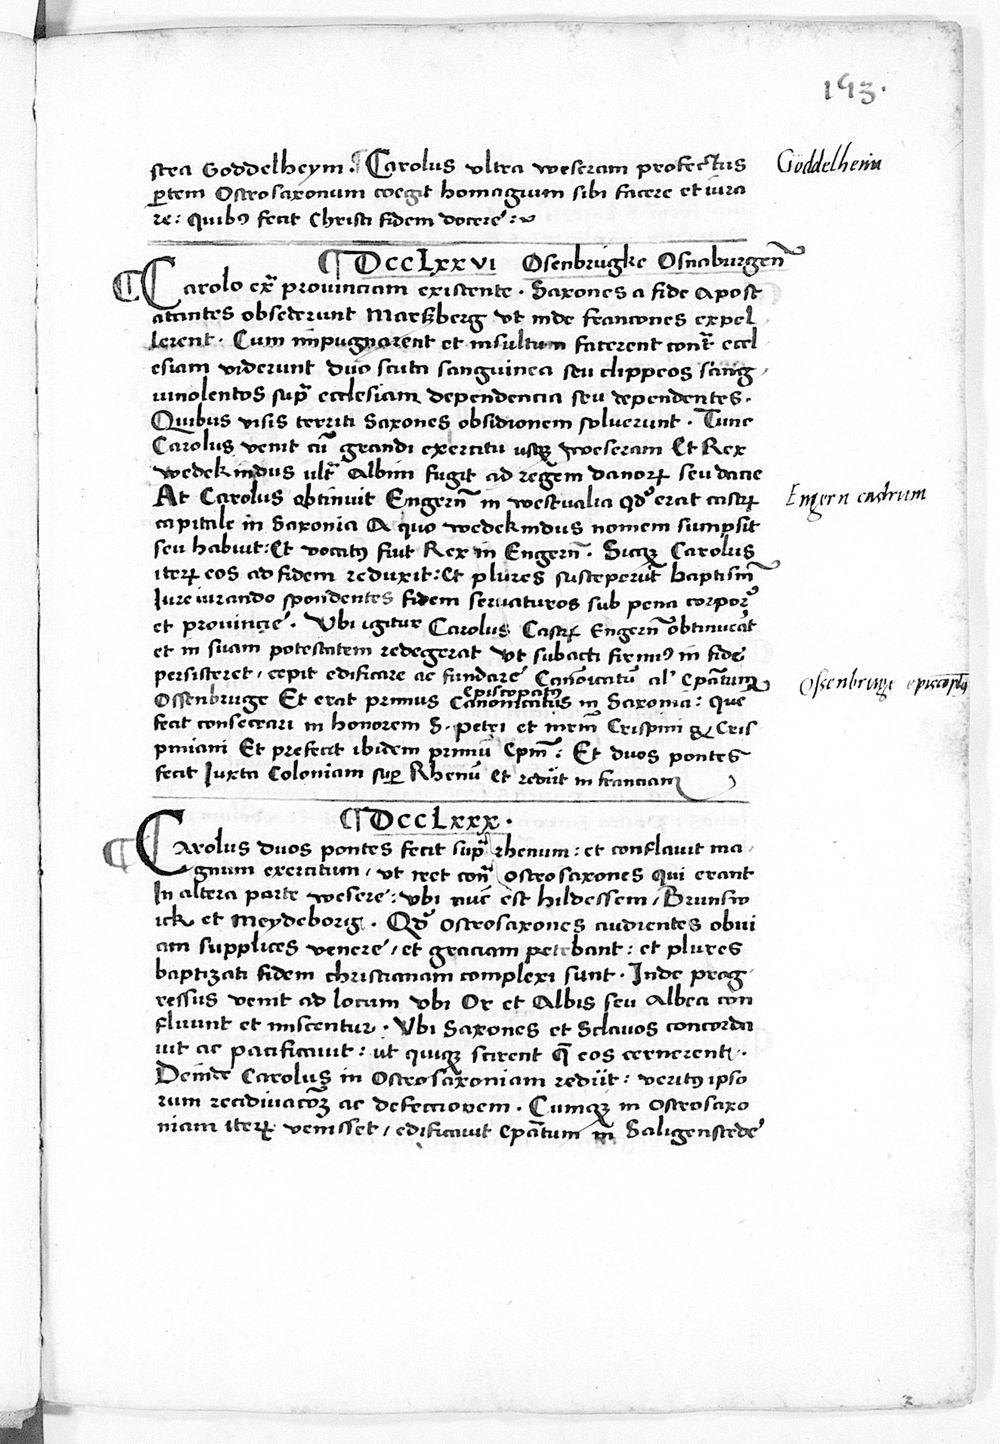 193.
strea Goddelheym. ¶ Carolus ultra weseram profectus
Göddelheim
ꝑtem Osteosaxonum coegit homagium sibi facere et iura
re: Quibꝰ fecit Christi fidem docere:
¶ DCCLXXVI Osenbrugke Osnaburgen̄
¶ Carolo ex̄ prouinciam existente. Saxones a fide apost
atantes obsederunt Martzberg vt inde francones expel
lerent. Cum impugnarent et insultum facerent cont̄ eccl
esiam viderunt duo scuta sanguinea seu clippeos sang
uinolentos sup̄ ecclesiam dependencia seu dependentes.
Quibus visis territi Saxones obsidionem soluerunt. Tunc
Carolus venit cū grandi exercitu usqꝫ weseram Et Rex
wedekindus ult̄ Albim fugit ad regem danorꝝ seu dacie
At Carolus obtinuit Engern̄ in westualia qd̓ erat castrꝝ
Engern castrum
capitale in Saxonia A quo wedekindus nomen sumpsit
seu habuit: Et vocatꝰ fuit Rex in Engern̄. Sicqꝫ Carolus
iterꝝ eos ad fidem reduxit: Et plures susceperūt baptism̄
Iureiurando spondentes fidem seruaturos sub pena corpor̓
et prouincie. Vbi igitur Carolus Castrꝝ Engern̄ obtinuerāt
et in suam potestatem redegerat vt subacti firmiꝰ in fide
persisteret, cepit edificare ac fundare Canoīcatū al̓ Ep̄atum
Ossenbrugi episcopatꝰ
Ossenbruge Et erat primus Canonicatus episcopatꝰ in Saxonia: Que
fecit consecrari in honorem S. petri et mr̄m Crispini & Cris
piniani Et prefecit ibidem primū Ep̄m: Et duos pontes
fecit Iuxta Coloniam suꝑ Rhenū et redijt in franciam
¶ DCCLXXX.
¶ Carolus duos pontes fecit sup̄ rhenum: et conflauit ma
gnum exercitum, vt iret con̄ osteosaxones qui erant
In altera parte wesere: vbi nūc est hildessem, Brunsw
ick et Meydeborig. Qd̓ osteosaxones audientes obui
am supplices venere, et graciam petebant: et plures
baptizati fidem christianam complexi sunt. Inde prog
ressus venit ad locum vbi Or et Albis seu Albea con
fluunt et miscentur. Vbi Saxones et Sclauos concorda
uit ac pacificauit: ut quiqꝫ scirent q̄ eos cernerent.
Deinde Carolus in Osteosaxoniam redijt: veritꝰ ipso
rum recidiuacōꝫ ac defectionem. Cumqꝫ in osteosaxo
niam iterꝝ venisset, edificauit Ep̄atum in Saligenstede